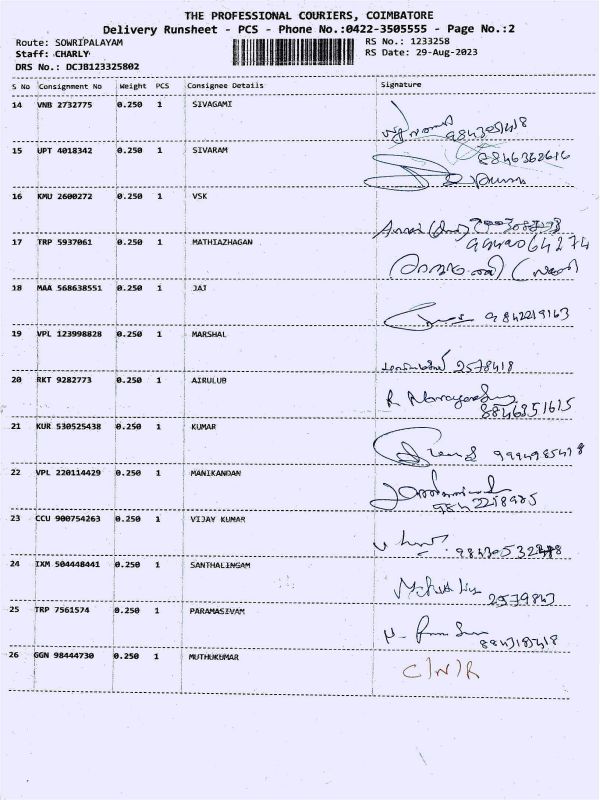 THE PROFESSIONAL COURIERS, COIMBATORE
Delivery Runsheet - PCS - Phone No.:0422-3505555 - Page No.:2
Route: SOWRIPALAYAM RS No.: 1233258
Staff: CHARLY RS Date: 29-Aug-2023
DRS No.: DCJB123325802
S No Consignment No Weight PCS Consignee Details Signature
14 VNB 2732775 0.250 1 SIVAGAMI
15 UPT 4018342 0.250 1 SIVARAM 8846362616
16 KMU 2600272 0.250 1 VSK
17 TRP 5937061 0.250 1 MATHIAZHAGAN
18 MAA 568638551 0.250 1 JAJ 9842219163
19 VPL 123998828 0.250 1 MARSHAL 2578418
20 RKT 9282773 0.250 1 AIRULUB 8846351615
21 KUR 530525438 0.250 1 KUMAR
22 VPL 220114429 0.250 1 MANIKANDAN
23 CCU 900754263 0.250 1 VIJAY KUMAR
24 IXM 504448441 0.250 1 SANTHALINGAM 2579843
25 TRP 7561574 0.250 1 PARAMASIVAM
26 GGN 98444730 0.250 1 MUTHUKUMAR C/N/R